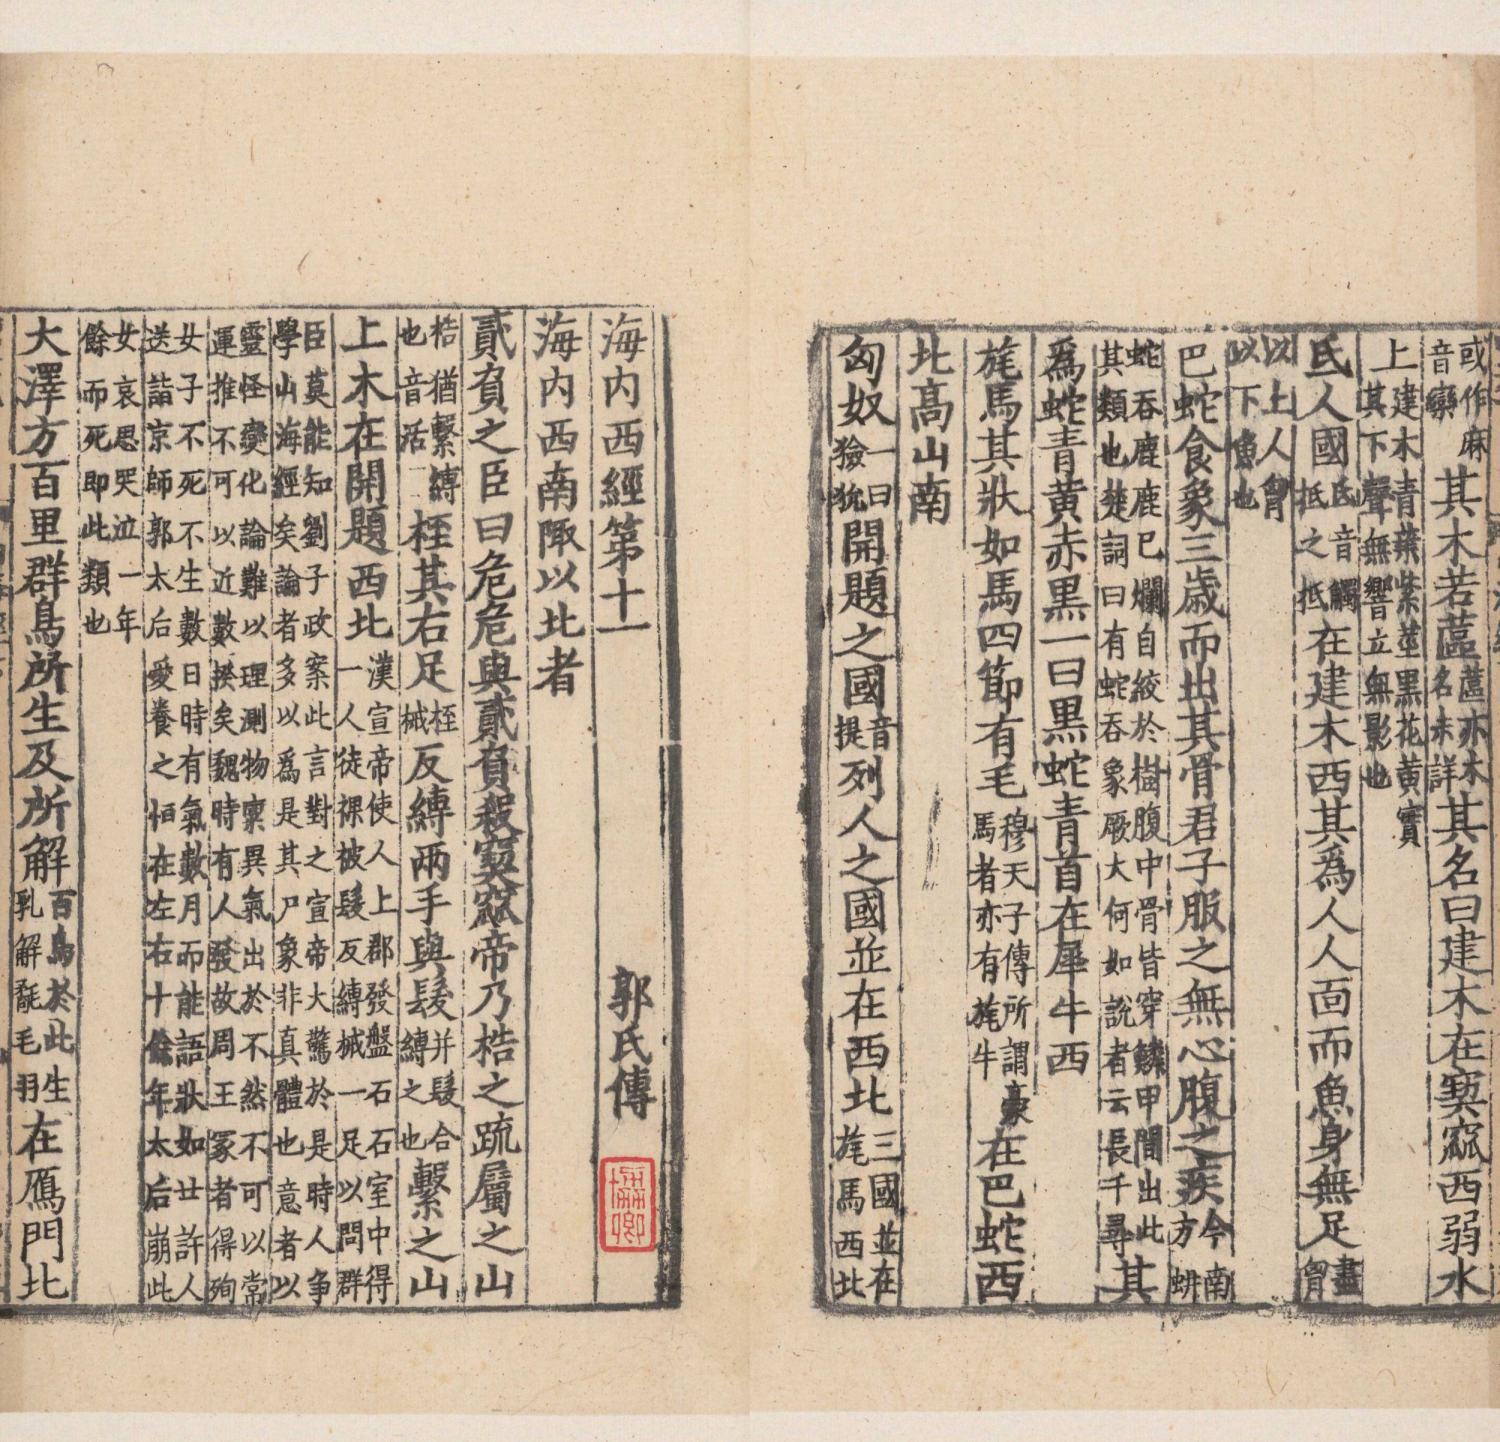 或作麻音欒其木若蓲蓲亦木名未詳其名曰建木在窫窳西弱水
上建木青葉紫莖黑花黄實其下聲無響立無影也
氐人國氐音觸抵之抵在建木西其爲人人面而魚身無足盡胷
以上人胷以下魚也
巴蛇食象三歳而出其骨君子服之無心腹之疾今南方蚺
蛇吞鹿鹿已爛自絞於樹腹中骨皆穿鱗甲間出此其類也楚詞曰有蛇吞象厥大何如說者云長千尋其
爲蛇青黄赤黒一曰黒蛇青首在犀牛西
旄馬其狀如馬四節有毛穆天子傳所謂豪馬者亦有旄牛在巴蛇西
北高山南
匈奴一曰獫狁開題之國音提列人之國並在西北三國並在旄馬西北
海内西經第十一
郭氏傳
海内西南陬以北者
貳負之臣曰危危與貳負殺窫窳帝乃梏之疏屬之山
梏猶繫縛也音活桎其右足桎械反縛兩手與髮并髮合縛之也繫之山
上木在開題西北漢宣帝使人上郡發盤石石室中得一人徒裸被髮反縛械一足以問群
臣莫能知劉子政案此言對之宣帝大驚於是時人争學山海經矣論者多以爲是其尸象非真體也意者以
靈怪變化論難以理測物禀異氣出於不然不可以常運推不可以近數揆矣魏時有人發故周王冢者得殉
女子不死不生數日時有氣數月而能語狀如廿許人送詣京師郭太后愛養之恒在左右十餘年太后崩此
女哀思哭泣一年餘而死即此類也
大澤方百里群鳥所生及所解百鳥於此生乳解毻毛羽在鴈門北